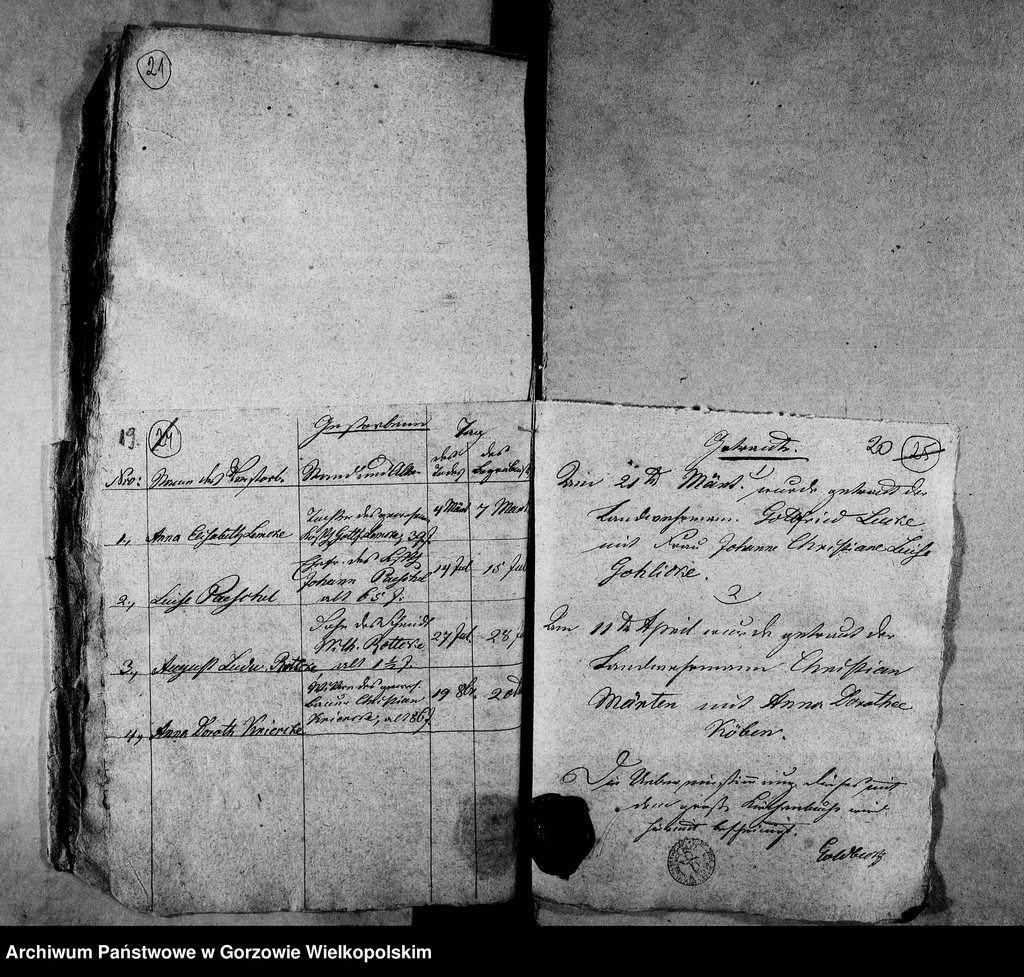 21
19.
24
Gestorbene
Tag
Nro: Name des Verstorb. Stand und Alter des Todes des Begräbnisses
1, Anna Elisabeth Lencke
Tochter des gewesen.
Gottf. Lencke, 39 J
4 März 7 März
2, Luise Paeschel
Ehefr. des
Johann Paeschel
alt 65 J.
14 Jul 15 Jul
3, August Ludw. Rottcke
Sohn des Schmidt
Wilh. Rottcke
alt 1½ J.
27 Jul 28 Jul
4, Anna Doroth Kniercke
Wittwe des gewes.
Bauer Christian
Kniercke, alt 86 J
19 8br. 20
Getraute.
20
25
1
Am 21ten März wurde getraut der
Landwehrmann Gottfried Lucke
mit Frau Johanne Christiane Luise
Gohlicke.
2
Am 11ten April wurde getraut der
Landwehrmann Christian
Märten mit Anna Dorothee
Köben.
Die Uebereinstimmung dieses mit
dem großen Kirchenbuche wird
hiermit bescheinigt.
Archiwum Państwowe w Gorzowie Wielkopolskim